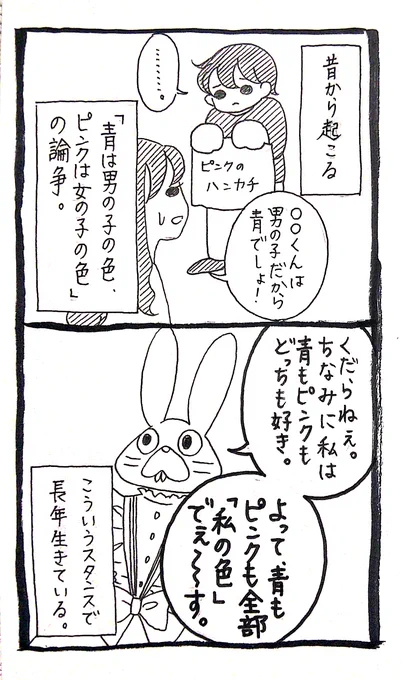 昔から起こる
………。
ピンクの
ハンカチ
○○くんは
男の子だから
青でしょ！
「青は男の子の色、
ピンクは女の子の色」
の論争。
くだらねぇ。
ちなみに私は
青もピンクも
どっちも好き。
よって、青も
ピンクも全部
「私の色」
でぇ〜〜す。
こういうスタンスで
長年生きている。